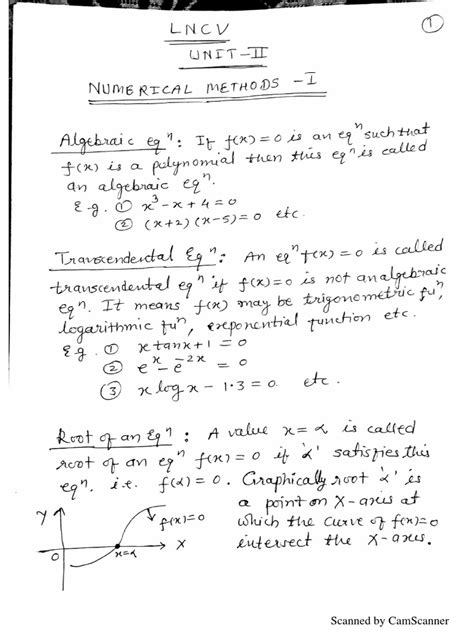 ①
LNCV
UNIT-II
NUMERICAL METHODS - I
Algebraic eqⁿ: If f(x)=0 is an eqⁿ such that
f(x) is a polynomial then this eqⁿ is called
an algebraic eqⁿ.
E.g. ① x³-x+4=0
② (x+2)(x-5)=0 etc.
Transcendental Eqⁿ: An eqⁿ f(x)=0 is called
transcendental eqⁿ if f(x)=0 is not an algebraic
eqⁿ. It means f(x) may be trigonometric fuⁿ,
logarithmic fuⁿ, exponential function etc.
Eg. ① x tanx+1 = 0
② eˣ - e⁻²ˣ = 0
③ x log x - 1.3 = 0. etc.
Root of an Eqⁿ: A value x=α is called
root of an eqⁿ f(x)=0 if 'α' satisfies this
eqⁿ. i.e. f(α)=0. Graphically root 'α' is
a point on X-axis at
which the curve of f(x)=0
intersect the X-axis.
Y
f(x)=0
O
x=α
X
Scanned by CamScanner